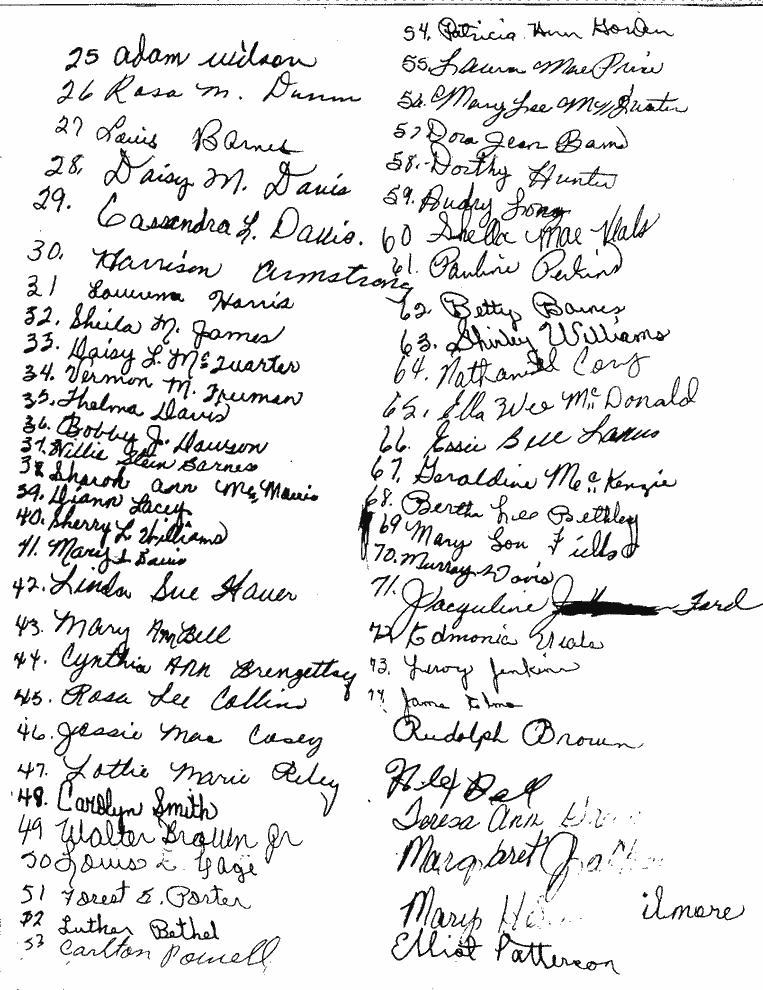 25 Adam Wilson
26 Rosa M. Dunm
27 Louis Barnes
28. Daisy M. Davis
29. Cassandra L. Davis.
30. Harrison Armstrong
31 Harris
32. Sheila M. James
33. Daisy L. McQuarter
34. Vernon M. Freeman
35. Thelma Davis
36. Bobby J. Dawson
37. Willie Barnes
38. Sharon Ann
39. Diann Lacey
40. Sherry L Williams
41. Mary L Davis
42. Linda Sue Hauer
43. Mary Ann Bell
44. Cynthia Ann Brengettsy
45. Rosa Lee Collins
46. Jessie Mae Casey
47. Lottie Marie Riley
48. Carolyn Smith
49 Walter Brown Jr
50 Louis L. Gage
51 Forest E. Porter
52 Luther Bethel
53 Carlton Powell
54. Patricia Ann Gorden
55. Laura Mae Price
56. Mary Lee McQuater
57 Dora Jean
58. Dorthy Hunter
59. Audry Long
60 Shella Mae Veals
61. Pauline Perkins
62. Betty Barnes
63. Shirley Williams
64. Nathaniel Cory
65. Ella Wee McDonald
66. Essie Bell
67. Geraldine McKenzie
68. Bertha Lee Bethley
69 Mary Lou Fields
70. Murray Davis
71. Jacquline Ford
72 Edmonia Veals
73. Leroy Jenkins
74. Jame
Rudolph Brown
Teresa Ann
Margaret
Mary ilmore
Elliot Patterson